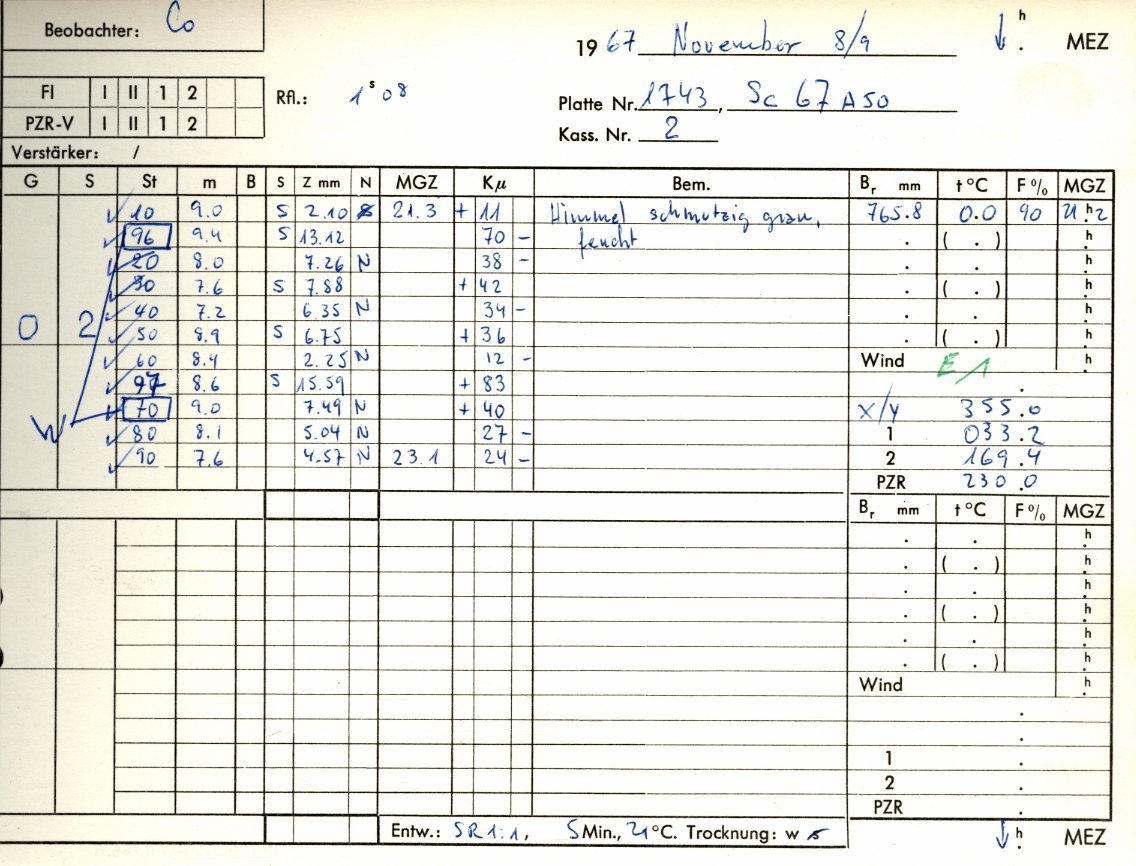 Beobachter: Co
19 67 November 8/9 ↓ h . MEZ
FI I II 1 2
Rfl.: 1 s 08
Platte Nr. 1743, Sc 67 A 50
PZR-V I II 1 2
Kass. Nr. 2
Verstärker: /
G S St m B S Z mm N MGZ Kμ Bem. Br mm t°C F% MGZ
10 9.0 S 2.10 21.3 + 11 Himmel schmutzig grau, 765.8 0.0 90 21 h 2
96 9.4 S 13.12 70 - feucht . ( . ) h
20 8.0 7.26 N 38 - . . h
30 7.6 S 7.88 + 42 . ( . ) h
40 7.2 6.35 N 34 - . . h
0 2 50 8.9 S 6.75 + 36 . ( . ) h
60 8.4 2.25 N 12 - Wind E 1 h
97 8.6 S 15.59 + 83 .
W 70 9.0 7.49 N + 40 x/y 355.0
80 8.1 5.04 N 27 - 1 033.2
90 7.6 4.57 N 23.1 24 - 2 169.4
PZR 230.0
Br mm t°C F% MGZ
. . h
. ( . ) h
. . h
. ( . ) h
. . h
. ( . ) h
Wind h
.
.
1 .
2 .
PZR .
Entw.: SR 1:1, 5 Min., 21 °C. Trocknung: w s ↓ h . MEZ